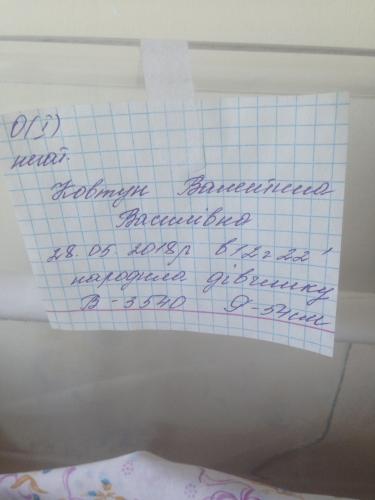 О(І)
негат.
Ковтун Валентина
Василівна
28.05.2018р в 12г 22'
народила дівчинку
В - 3540 Д - 54см